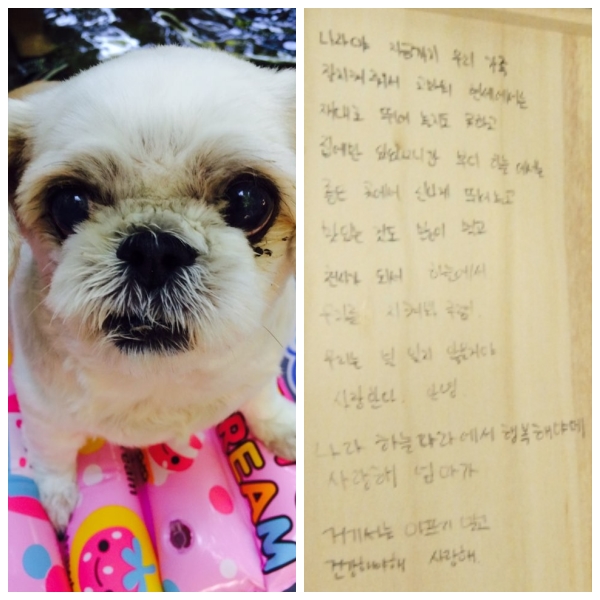 나라야 지금까지 우리 가족
잘 지켜줘서 고마워
제대로 뛰어 놀지도 못하고
집에만 있었으니까 부디
좋은 곳에서 신나게 뛰어놀고
맛있는 것도 많이 먹고
천사가 되서 하늘에서
우리를 지켜봐
우리는 널 잊지 않을거다
사랑한다. 안녕
나라 하늘나라에서 행복해야돼
사랑해 엄마가
거기서는 아프지 말고
건강해야해 사랑해.
REAM